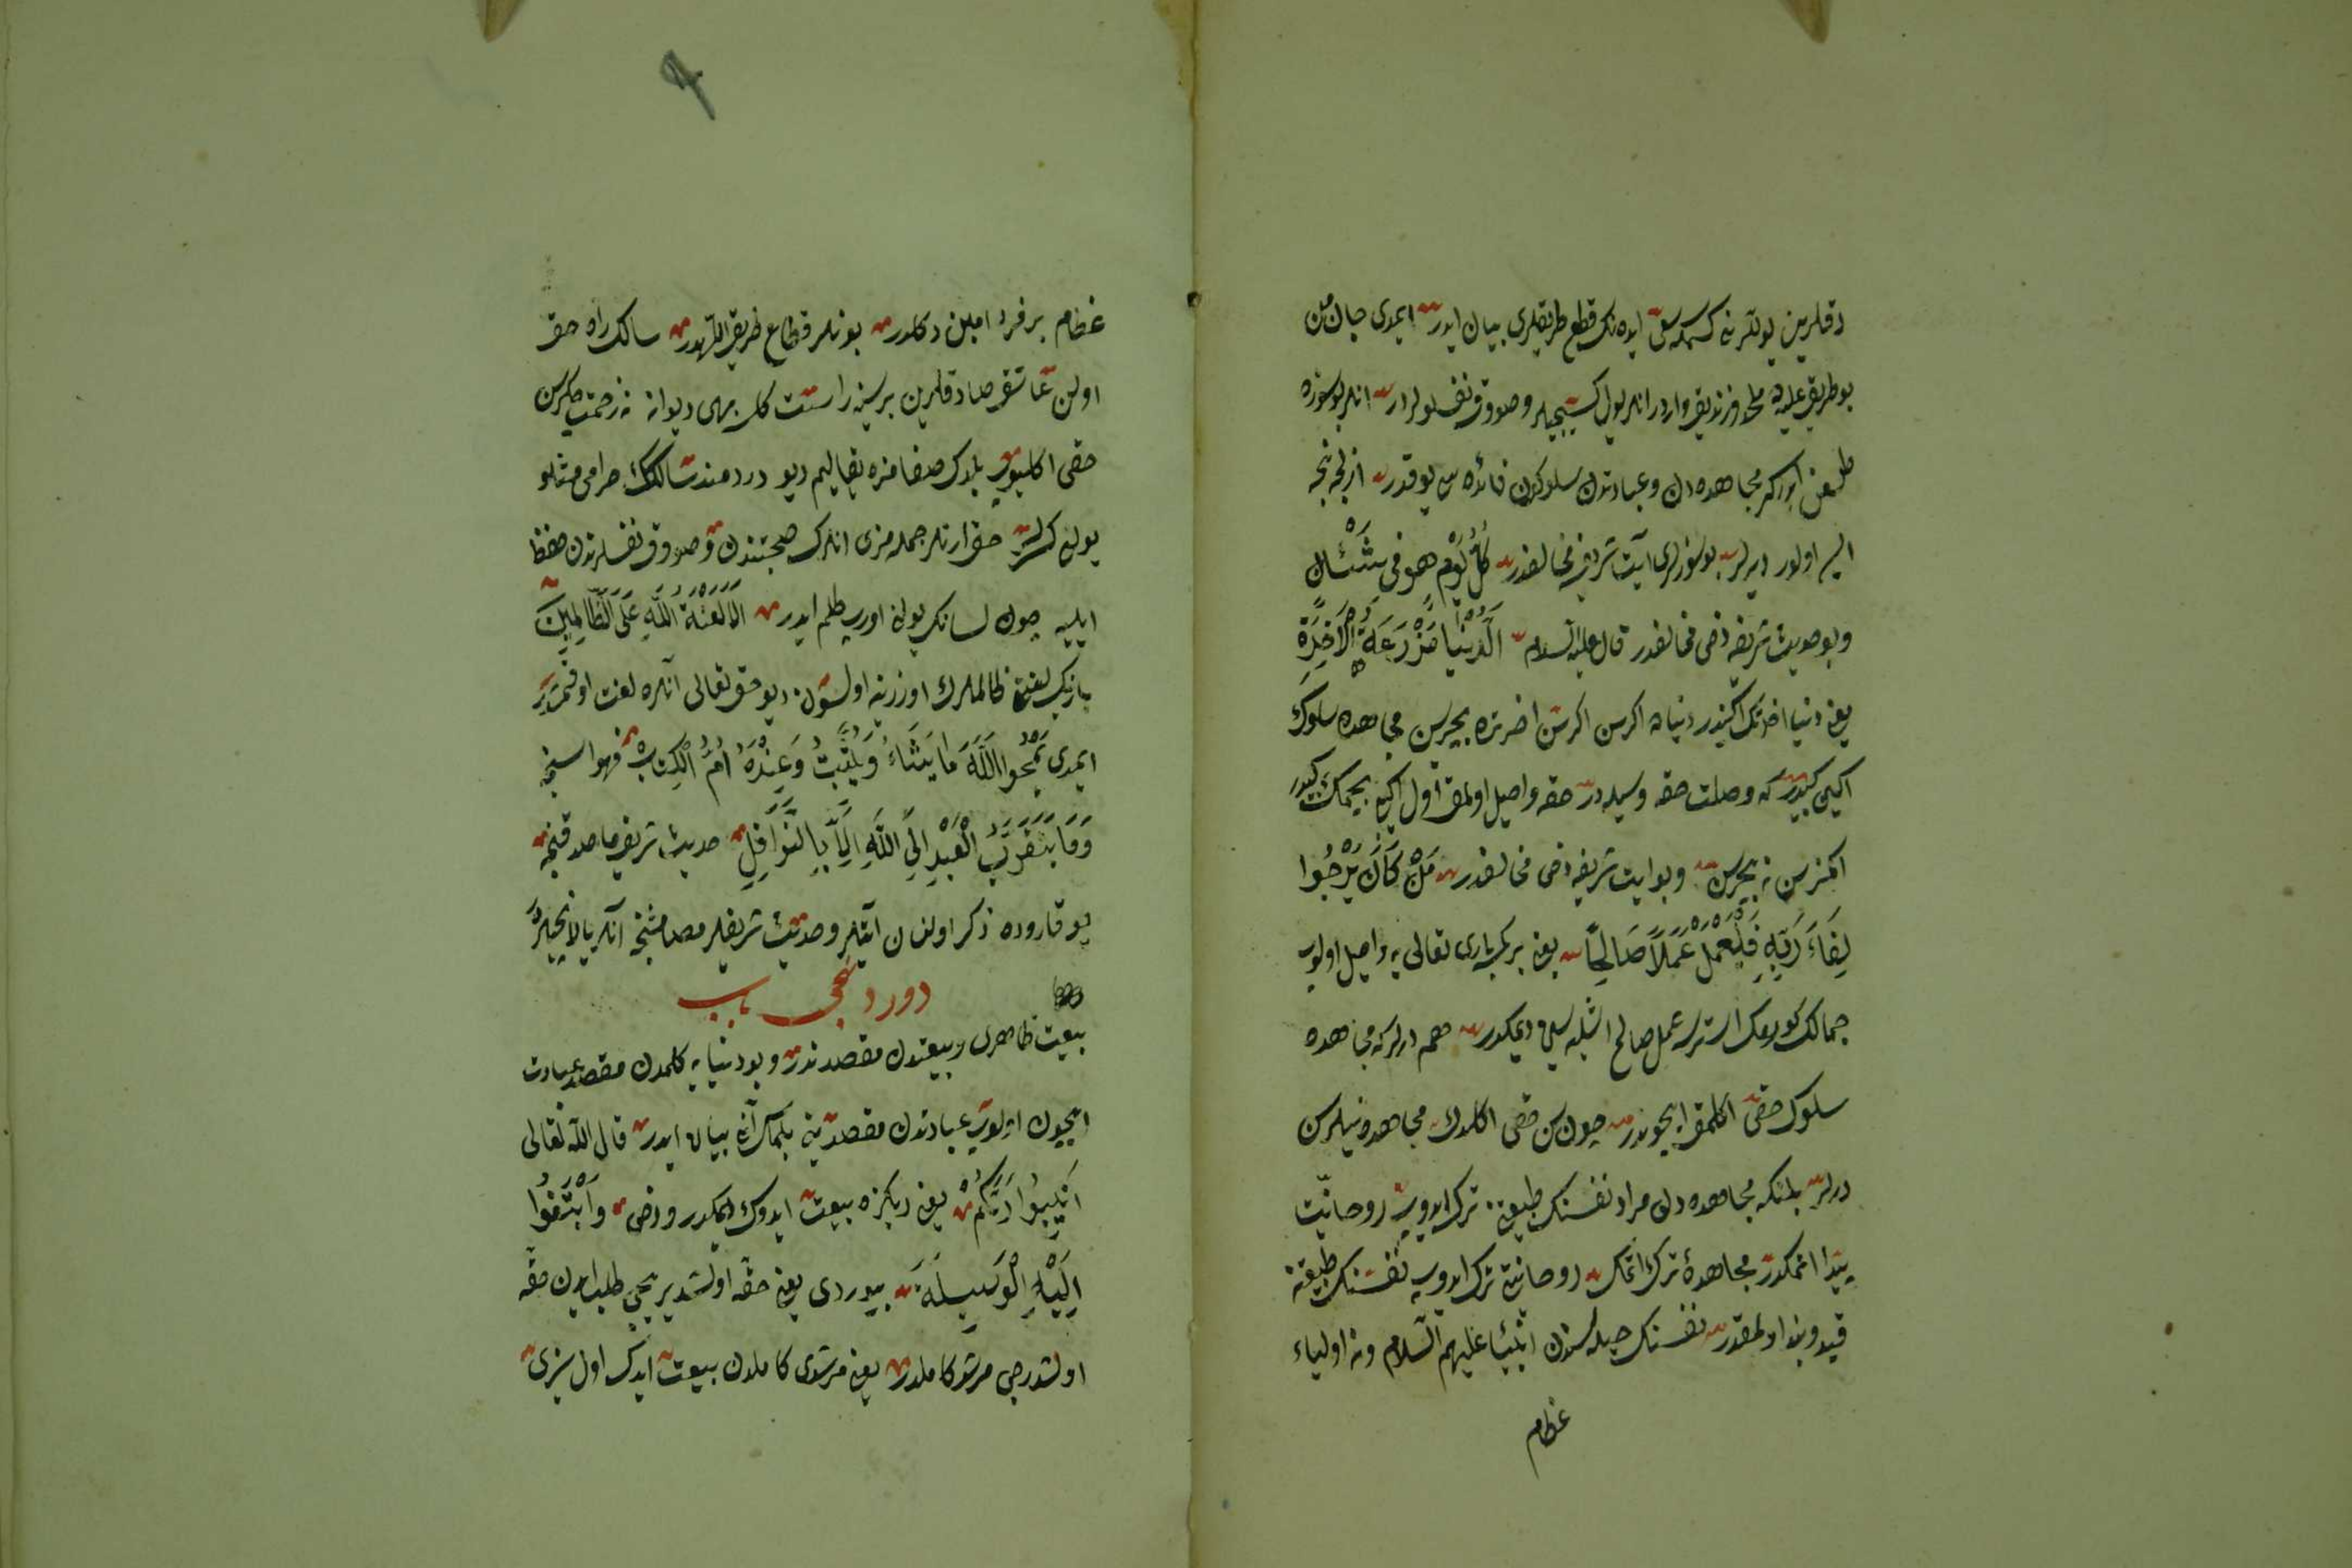 دقلرین یولترنه کسمه سی ایده‌نك قطع طریقلری بیان ایدر ایمدی جان من
بو طریق علیه ملحد و زندیق واردر انلر یول کسیجیلر و صووق نفسلولردر انلر بو سوزه
طعن ایدرلر مجاهده‌دن و عبادتدن سلوکدن فائده سی یوقدر ازلده نیجه
ایسه اولور دیرلر بو سوزلری آیت شریفه مخالفدر كُلَّ يَوْمٍ هُوَ فِى شَأْنٍ
و بو حدیث شریفه دخی مخالفدر قال علیه السلام اَلدُّنْيَا مَزْرَعَةُ الْآخِرَةِ
یعنی دنیا اخرتك اکینیدر دنیاده اکرسن اخرتده بیچرسن مجاهده سلوك
اکین کبیدر که وصلت حقه وسیله‌در حقه واصل اولمق اول اکینی بیچمك کبیدر
اکمزسن نه بیچرسن و بو ایت شریفه دخی مخالفدر مَنْ كَانَ يَرْجُوا
لِقَاءَ رَبِّهِ فَلْيَعْمَلْ عَمَلًا صَالِحًا یعنی بر کمسه باری تعالی یه واصل اولوب
جمالك کورمك استرسه عمل صالح اشلیه سین دیمکدر هم دیرلر که مجاهده
سلوك حقی اکلمق ایچوندر چون سن حقی اکلدك مجاهده نیلرسن
دیرلر بلکه مجاهده‌دن مراد نفسنك طبیعتن ترك ایدوب روحانیت
پیدا اتمکدر مجاهده ترك اتمك روحانیتی ترك ایدوب نفسنك طبیعتنه
قید و بند اولمقدر نفسنك حیله سندن انبیا علیهم السلام و نه اولیاء
عظام
عظام بر فرد امین دکلدر بونلر قطاع طریق اللهدر سالك راه حق
اولن عاشق صادقلرین برسینه راست کلسه بهی دیوانه نه زحمت چکرسن
حقی اکلیوب بلدك صفامزه بقالیم دیو دردمند سالکك حرامی مثللو
یولین کسر حق ارنلر جمله‌مزی انلرك صحبتندن و صووق نفسلرندن حفظ
ایلیه چون لسانك یولن اورب ظلم ایدر اَلَا لَعْنَةُ اللهِ عَلَى الظَّالِمِينَ
یارینکی لعنتم ظالملرك اوزرینه اولسون دیو حق تعالی آنلره لعنت اوقمشدر
ایمدی يَمْحُوا اللهُ مَا يَشَاءُ وَيُثْبِتُ وَعِنْدَهُ اُمُّ الْكِتَابِ فهواسنجه
وَمَا يَتَقَرَّبُ الْعَبْدُ اِلَى اللهِ اِلَّا بِالنَّوَافِلِ حدیث شریف ماصدقنجه
یوقاروده ذکر اولنان آیتلر و حدیث شریفلر مصداقنجه آنلر یالانجیلردر
دوردنجی باب
بیعت ظاهری و بیعتدن مقصد ندر و بو دنیایه کلمدن مقصد عبادت
ایچون اولوب عبادتدن مقصد نه بلمك آنی بیان ایدر قال الله تعالی
اَنِيبُوا رَبَّكُمْ یعنی ربکزه بیعت ایدوك دیمکدر و دخی وَابْتَغُوا
اِلَيْهِ الْوَسِيلَةَ بیوردی یعنی حقه اولشدیریجی طلب ایدن حقه
اولشدرجی مرشد کاملدر یعنی مرشدی کاملدن بیعت ایدك اول سزی